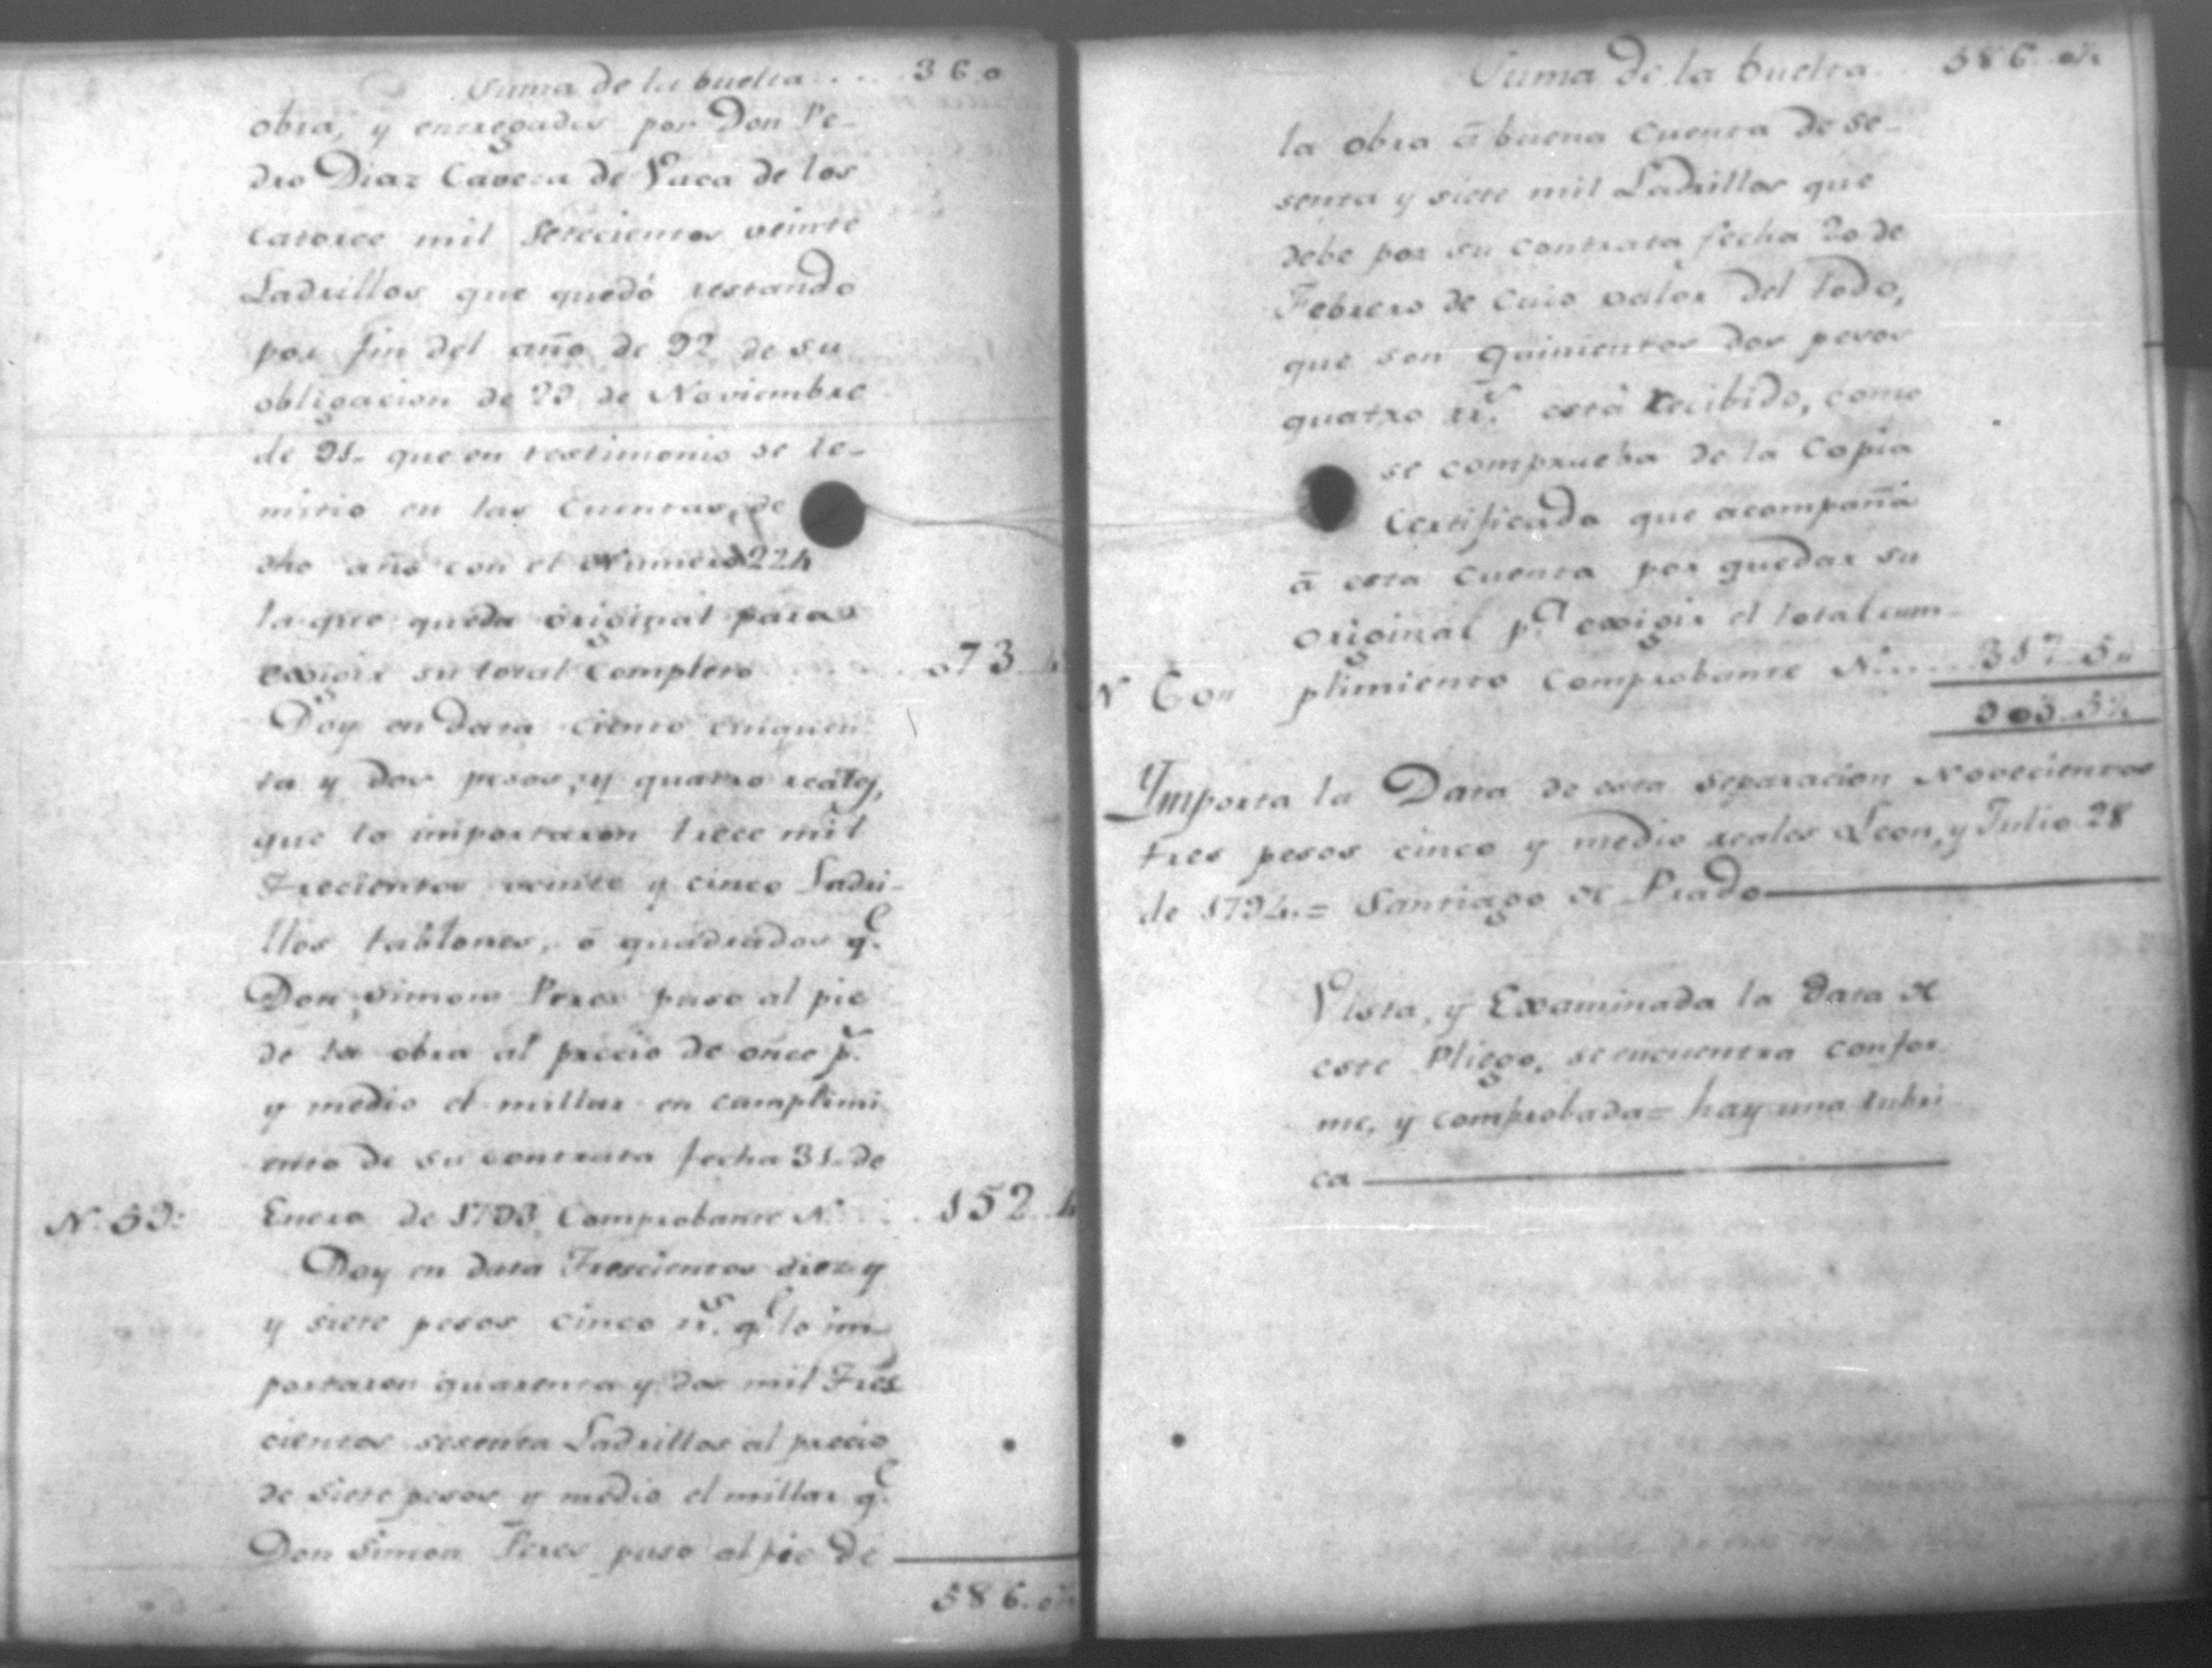 Suma de la buelta.... 360
obra, y entregados por Don Pe-
dro Diaz Caveza de Vaca de los
catorce mil setecientos veinte
Ladrillos que quedó restando
por fin del año de 92 de su
obligacion de 29 de Noviembre
de 91. que en testimonio se re-
mitio en las Cuentas, de
dho año con el Numero 224
la que queda original para
exigir su total Completo ..... 073
Doy en data ciento cinquen
ta y dos pesos, y quatro reales,
que lo importaron trece mil
Trecientos veinte y cinco Ladri-
llos tablones, o quadrados q.e
Don Simon Peres puso al pie
de la obra al precio de once p.s
y medio el millar en camplimi
ento de su contrata fecha 31. de
N. 59: Enero de 1793 Comprobante N. ... 152..4
Doy en data Trescientos diez y
y siete pesos cinco rr.s q.e lo im-
portaron quarenta y dos mil Tres
cientos sesenta Ladrillos al precio
de siete pesos y medio el millar q.e
Don Simon Peres puso al pie de
586. 0½
Suma de la buelta.. 586. 0½
la obra á buena cuenta de se-
senta y siete mil Ladrillos que
debe por su contrata fecha 20 de
Febrero de cuio valor del todo,
que son quinientos dos pesos
quatro rr.s está recibido, como
se comprueba de la Copia
Certificada que acompaña
á esta cuenta por quedar su
original p.a exigir el total cum-
N 60" plimiento Comprobante N..... 317..5"
903..5½
Ymporta la Data de esta separacion Novecientos
tres pesos cinco y medio reales Leon, y Julio 28
de 1794.= Santiago de Prado
Vista, y Examinada la Data de
este Pliego, se encuentra confor
me, y comprobada= hay una rubri
ca